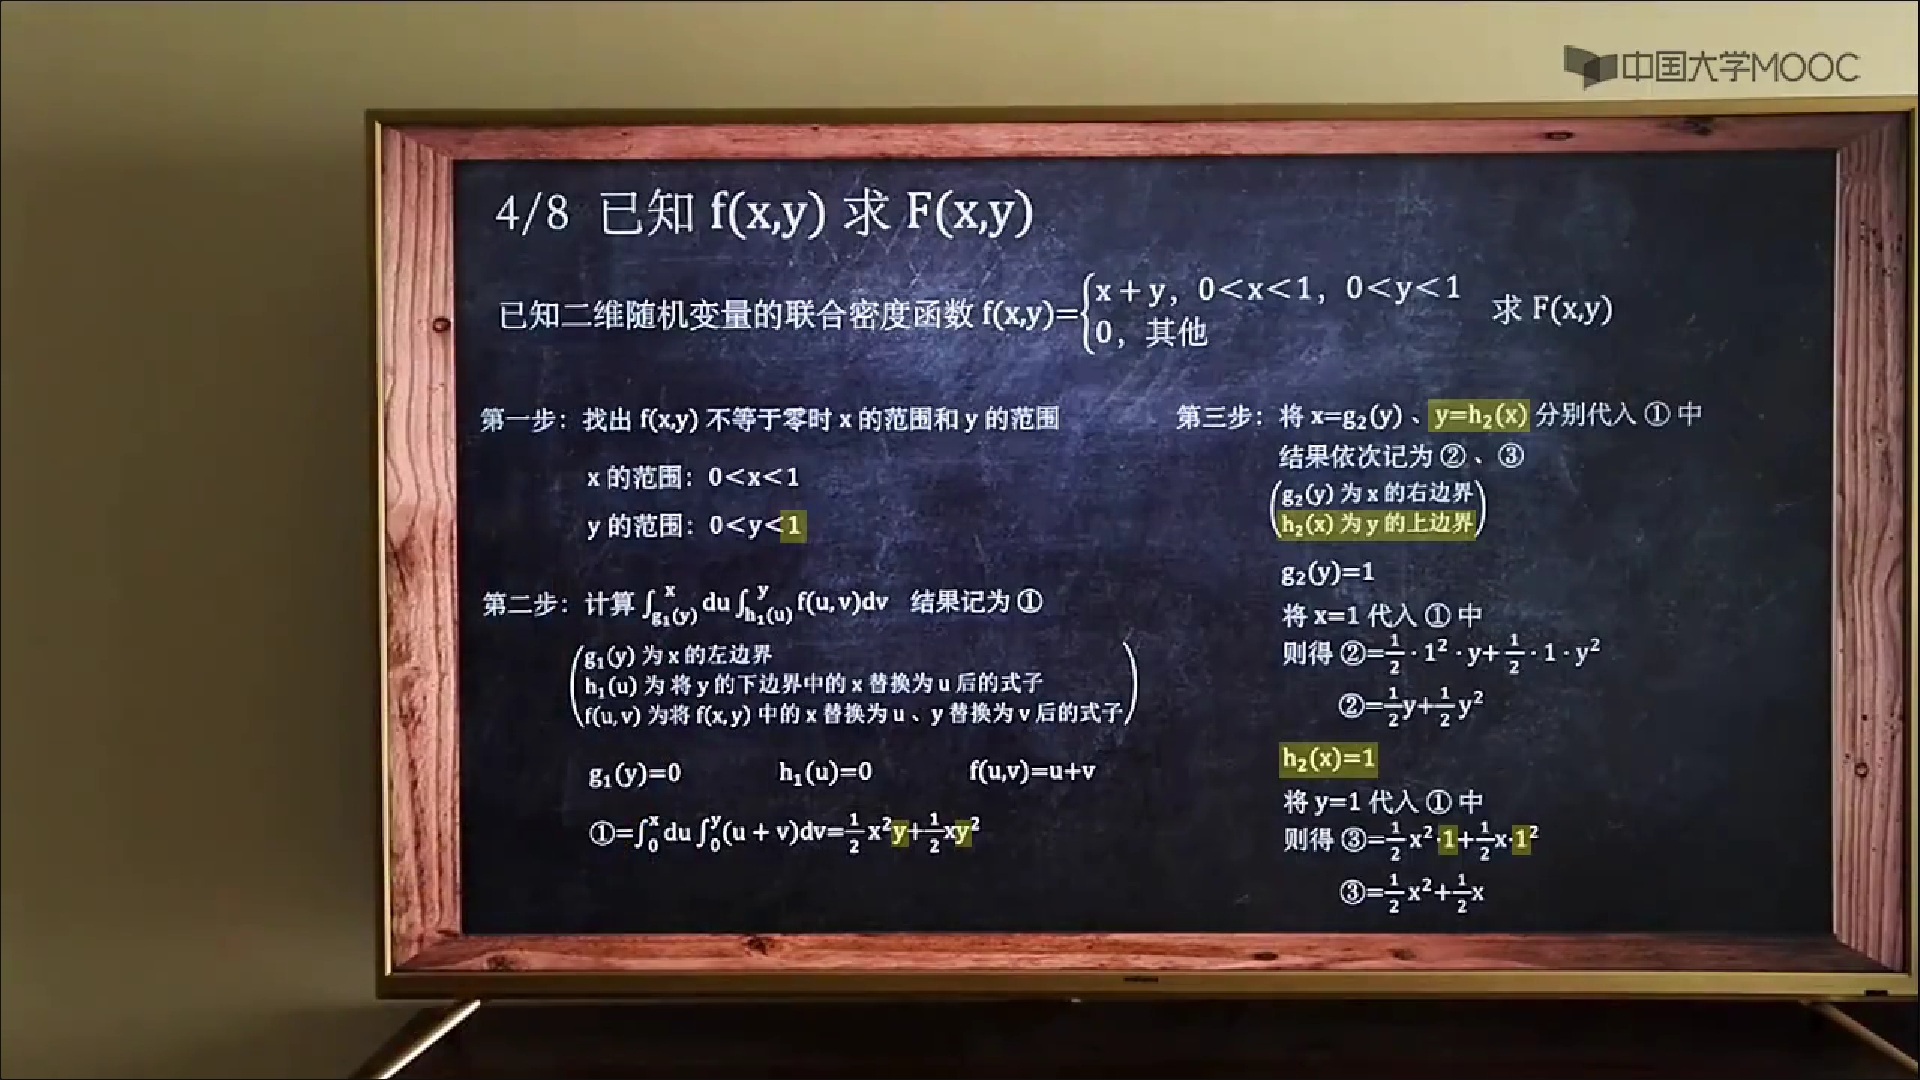 中国大学MOOC
4/8 已知 f(x,y) 求 F(x,y)
已知二维随机变量的联合密度函数 f(x,y)={x+y, 0<x<1, 0<y<1
0, 其他
求 F(x,y)
第一步：找出 f(x,y) 不等于零时 x 的范围和 y 的范围
x 的范围：0<x<1
y 的范围：0<y<1
第二步：计算 ∫_{g₁(y)}^{x} du ∫_{h₁(u)}^{y} f(u,v)dv 结果记为 ①
(g₁(y) 为 x 的左边界
h₁(u) 为 将 y 的下边界中的 x 替换为 u 后的式子
f(u,v) 为将 f(x,y) 中的 x 替换为 u、y 替换为 v 后的式子)
g₁(y)=0 h₁(u)=0 f(u,v)=u+v
①=∫₀ˣ du ∫₀ʸ (u+v)dv=½x²y+½xy²
第三步：将 x=g₂(y)、y=h₂(x) 分别代入 ① 中
结果依次记为 ②、③
(g₂(y) 为 x 的右边界
h₂(x) 为 y 的上边界)
g₂(y)=1
将 x=1 代入 ① 中
则得 ②=½·1²·y+½·1·y²
②=½y+½y²
h₂(x)=1
将 y=1 代入 ① 中
则得 ③=½x²·1+½x·1²
③=½x²+½x